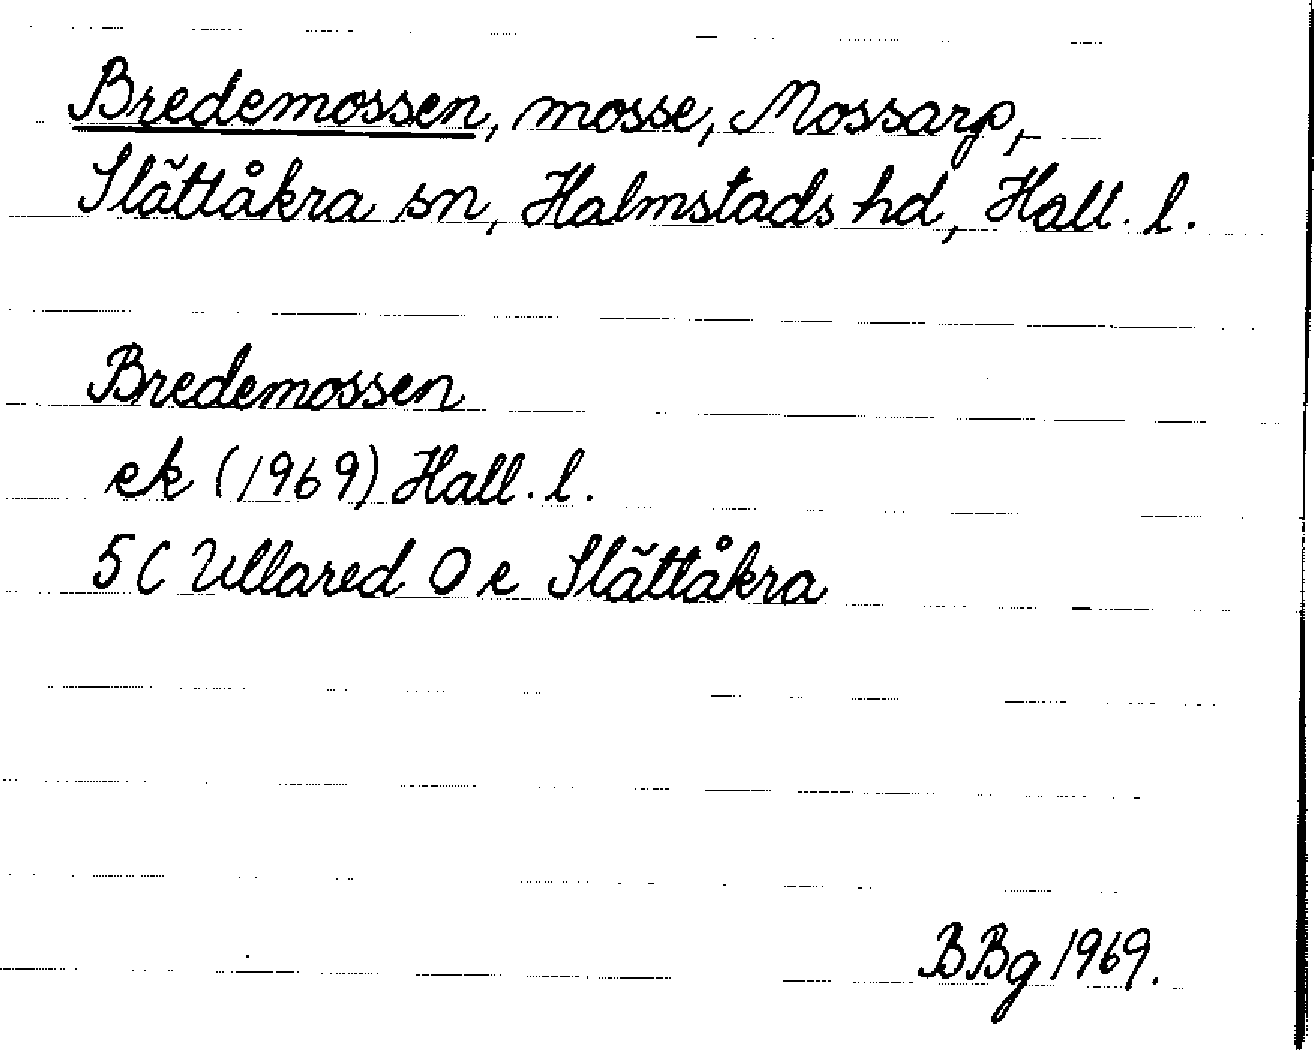 Bredemossen, mosse, Mossarp,
Slättåkra sn, Halmstads hd, Hall. l.
Bredemossen
ek (1969) Hall. l.
5C Ullared O e Slättåkra
BBg 1969.